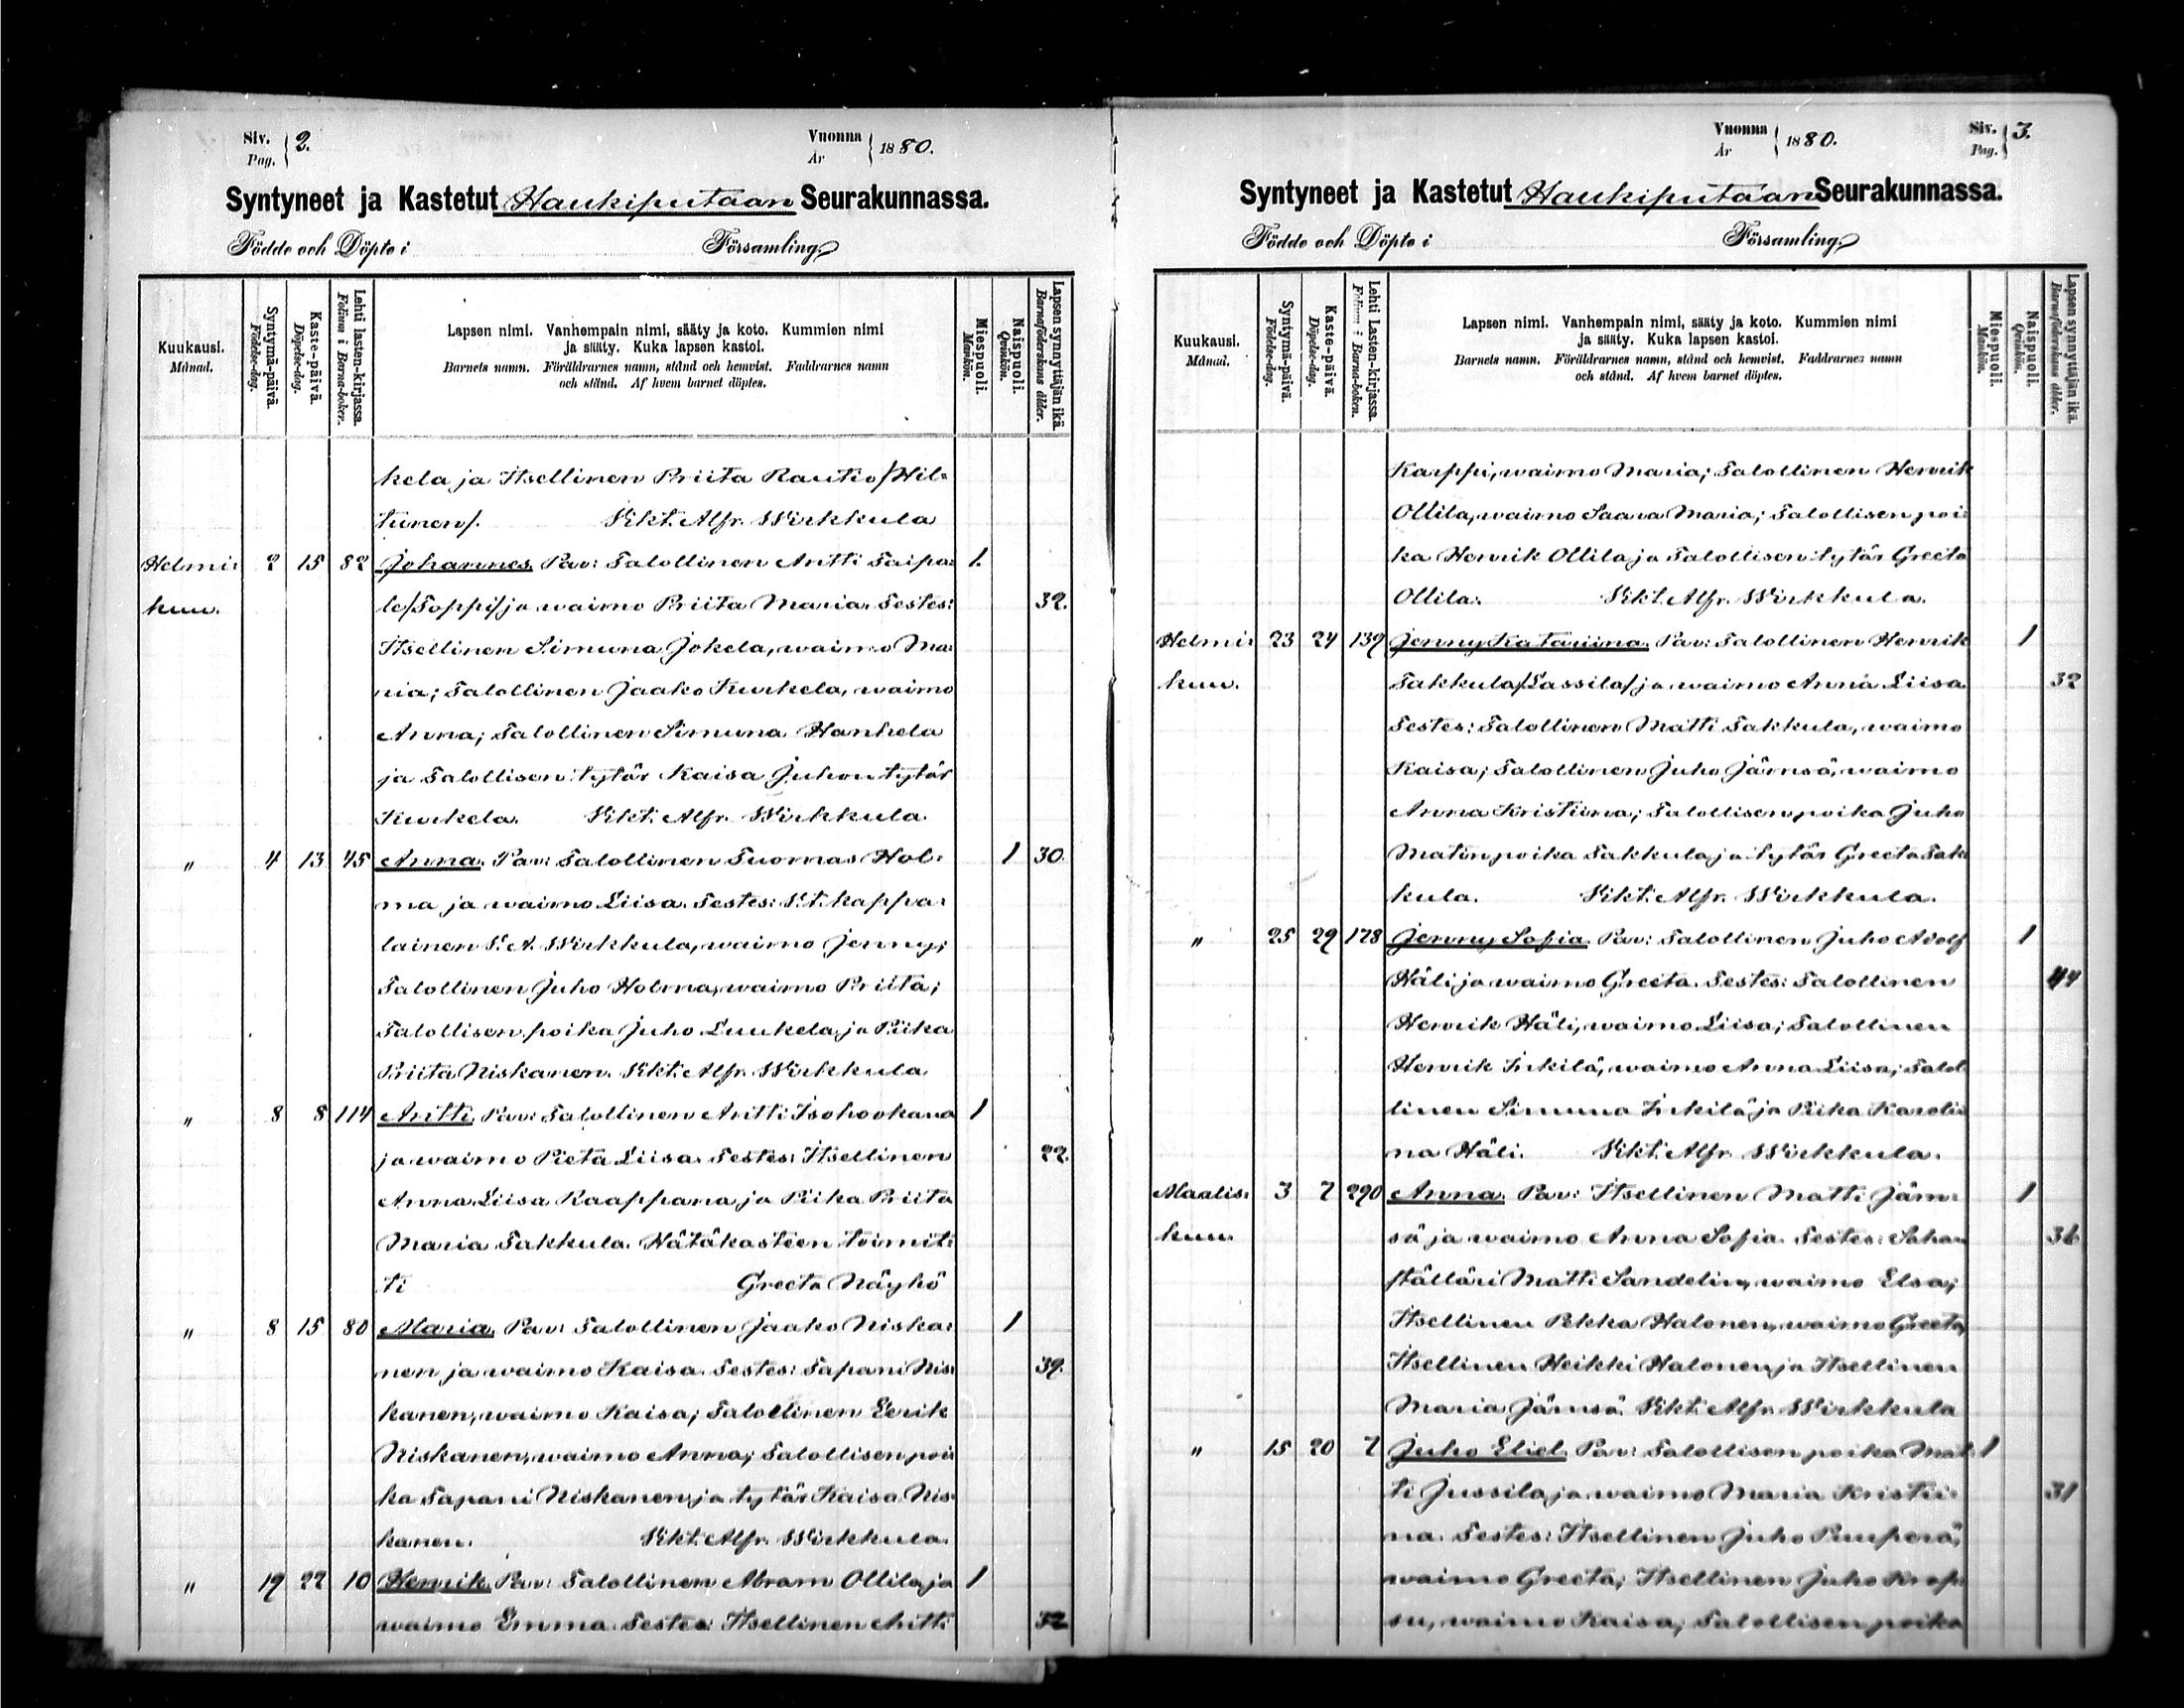 Siv. 2.
Pag.
Vuonna 1880.
År
Syntyneet ja Kastetut Haukiputaan Seurakunnassa.
Födde och Döpte i Församling
Kuukausi.
Månad.
Syntymä-päivä.
Födelse-dag.
Kaste-päivä.
Döpelse-dag.
Lehti lasten-kirjassa.
Folium i Barna-boken.
Lapsen nimi. Vanhempain nimi, sääty ja koto. Kummien nimi
ja sääty. Kuka lapsen kastoi.
Barnets namn. Föräldrarnes namn, stånd och hemvist. Faddrarnes namn
och stånd. Af hvem barnet döptes.
Miespuoli.
Mankön.
Naispuoli.
Qvinkön.
Lapsen synnyttäjän ikä.
Barnaföderskans ålder.
kela ja Itsellinen Priita Rautio/Hil=
tunen/. Vikt. Alfr. Wirkkula
Helmi= 2 15 82 Johannes. Pav: Talollinen Antti Taipa= 1.
kuu. le/Toppi/ja waimo Priita Maria. Testes: 32.
Itsellinen Simuna Jokela, waimo Ma=
ria; Talollinen Jaako Kurkela, waimo
Anna; Talollinen Simuna Hankela
ja Talollisen tytär Kaisa Juhontytär
Kurkela. Vikt. Alfr. Wirkkula.
" 4 13 45 Anna. Pav: Talollinen Tuomas Hol= 1 30.
ma ja waimo Liisa. Testes: V.t. kappa=
lainen V. A. Wirkkula, waimo Jenny;
Talollinen Juho Holma, waimo Priita;
Talollisen poika Juho Luukela ja Piika
Priita Niskanen. Vikt. Alfr. Wirkkula.
" 8 8 114 Antti. Pav: Talollinen Antti Isohookana 1
ja waimo Pieta Liisa. Testes: Itsellinen 22.
Anna Liisa Kaappana ja Piika Priita
Maria Takkula. Hätäkasteen toimit=
ti Greeta Näyhö
" 8 15 80 Maria. Pav: Talollinen Jaako Niska= 1
nen ja waimo Kaisa. Testes: Tapani Nis= 39.
kanen, waimo Kaisa; Talollinen Eerik
Niskanen, waimo Anna; Talollisen poi=
ka Tapani Niskanen ja tytär Kaisa Nis=
kanen. Vikt. Alfr. Wirkkula.
" 19 22 10 Henrik. Pav: Talollinen Abram Ollila ja 1
waimo Emma. Testes: Itsellinen Antti 32
Vuonna 1880.
År
Siv. 3.
Pag.
Syntyneet ja Kastetut Haukiputaan Seurakunnassa.
Födde och Döpte i Församling
Kuukausi.
Månad.
Syntymä-päivä.
Födelse-dag.
Kaste-päivä.
Döpelse-dag.
Lehti Lasten-kirjassa.
Folium i Barna-boken.
Lapsen nimi. Vanhempain nimi, sääty ja koto. Kummien nimi
ja sääty. Kuka lapsen kastoi.
Barnets namn. Föräldrarnes namn, stånd och hemvist. Faddrarnes namn
och stånd. Af hvem barnet döptes.
Miespuoli.
Mankön.
Naispuoli.
Qvinkön.
Lapsen synnyttäjän ikä.
Barnaföderskans ålder.
Karppi, waimo Maria; Talollinen Henrik
Ollila, waimo Saara Maria; Talollisen poi=
ka Henrik Ollila ja Talollisen tytär Greeta
Ollila. Vikt. Alfr. Wirkkula.
Helmi= 23 24 139 Jenny Katariina. Pav: Talollinen Henrik 1
kuu. Takkula/Lassila/ja waimo Anna Liisa. 32
Testes: Talollinen Matti Takkula, waimo
Kaisa; Talollinen Juho Jämsä, waimo
Anna Kristiina; Talollisen poika Juho
Matinpoika Takkula ja tytär Greeta Tak=
kula. Vikt. Alfr. Wirkkula.
" 25 29 178 Jenny Sofia. Pav: Talollinen Juho Adolf 1
Häli ja waimo Greeta. Testes: Talollinen 44
Henrik Häli, waimo Liisa; Talollinen
Henrik Inkilä, waimo Anna Liisa; Talol=
linen Simuna Inkilä ja Piika Karolii=
na Häli. Vikt. Alfr. Wirkkula.
Maalis= 3 7 290 Anna. Pav: Itsellinen Matti Jäm= 1
kuu. sä ja waimo Anna Sofia. Testes: Saha= 36
ställäri Matti Sandelin, waimo Elsa;
Itsellinen Pekka Halonen, waimo Greeta;
Itsellinen Heikki Halonen ja Itsellinen
Maria Jämsä. Vikt. Alfr. Wirkkula
" 15 20 7 Juho Eliel. Pav: Talollisen poika Mat= 1
ti Jussila ja waimo Maria Kristii= 31
na. Testes: Itsellinen Juho Puuperä,
waimo Greeta; Itsellinen Juho Krop=
su, waimo Kaisa; Talollisen poika